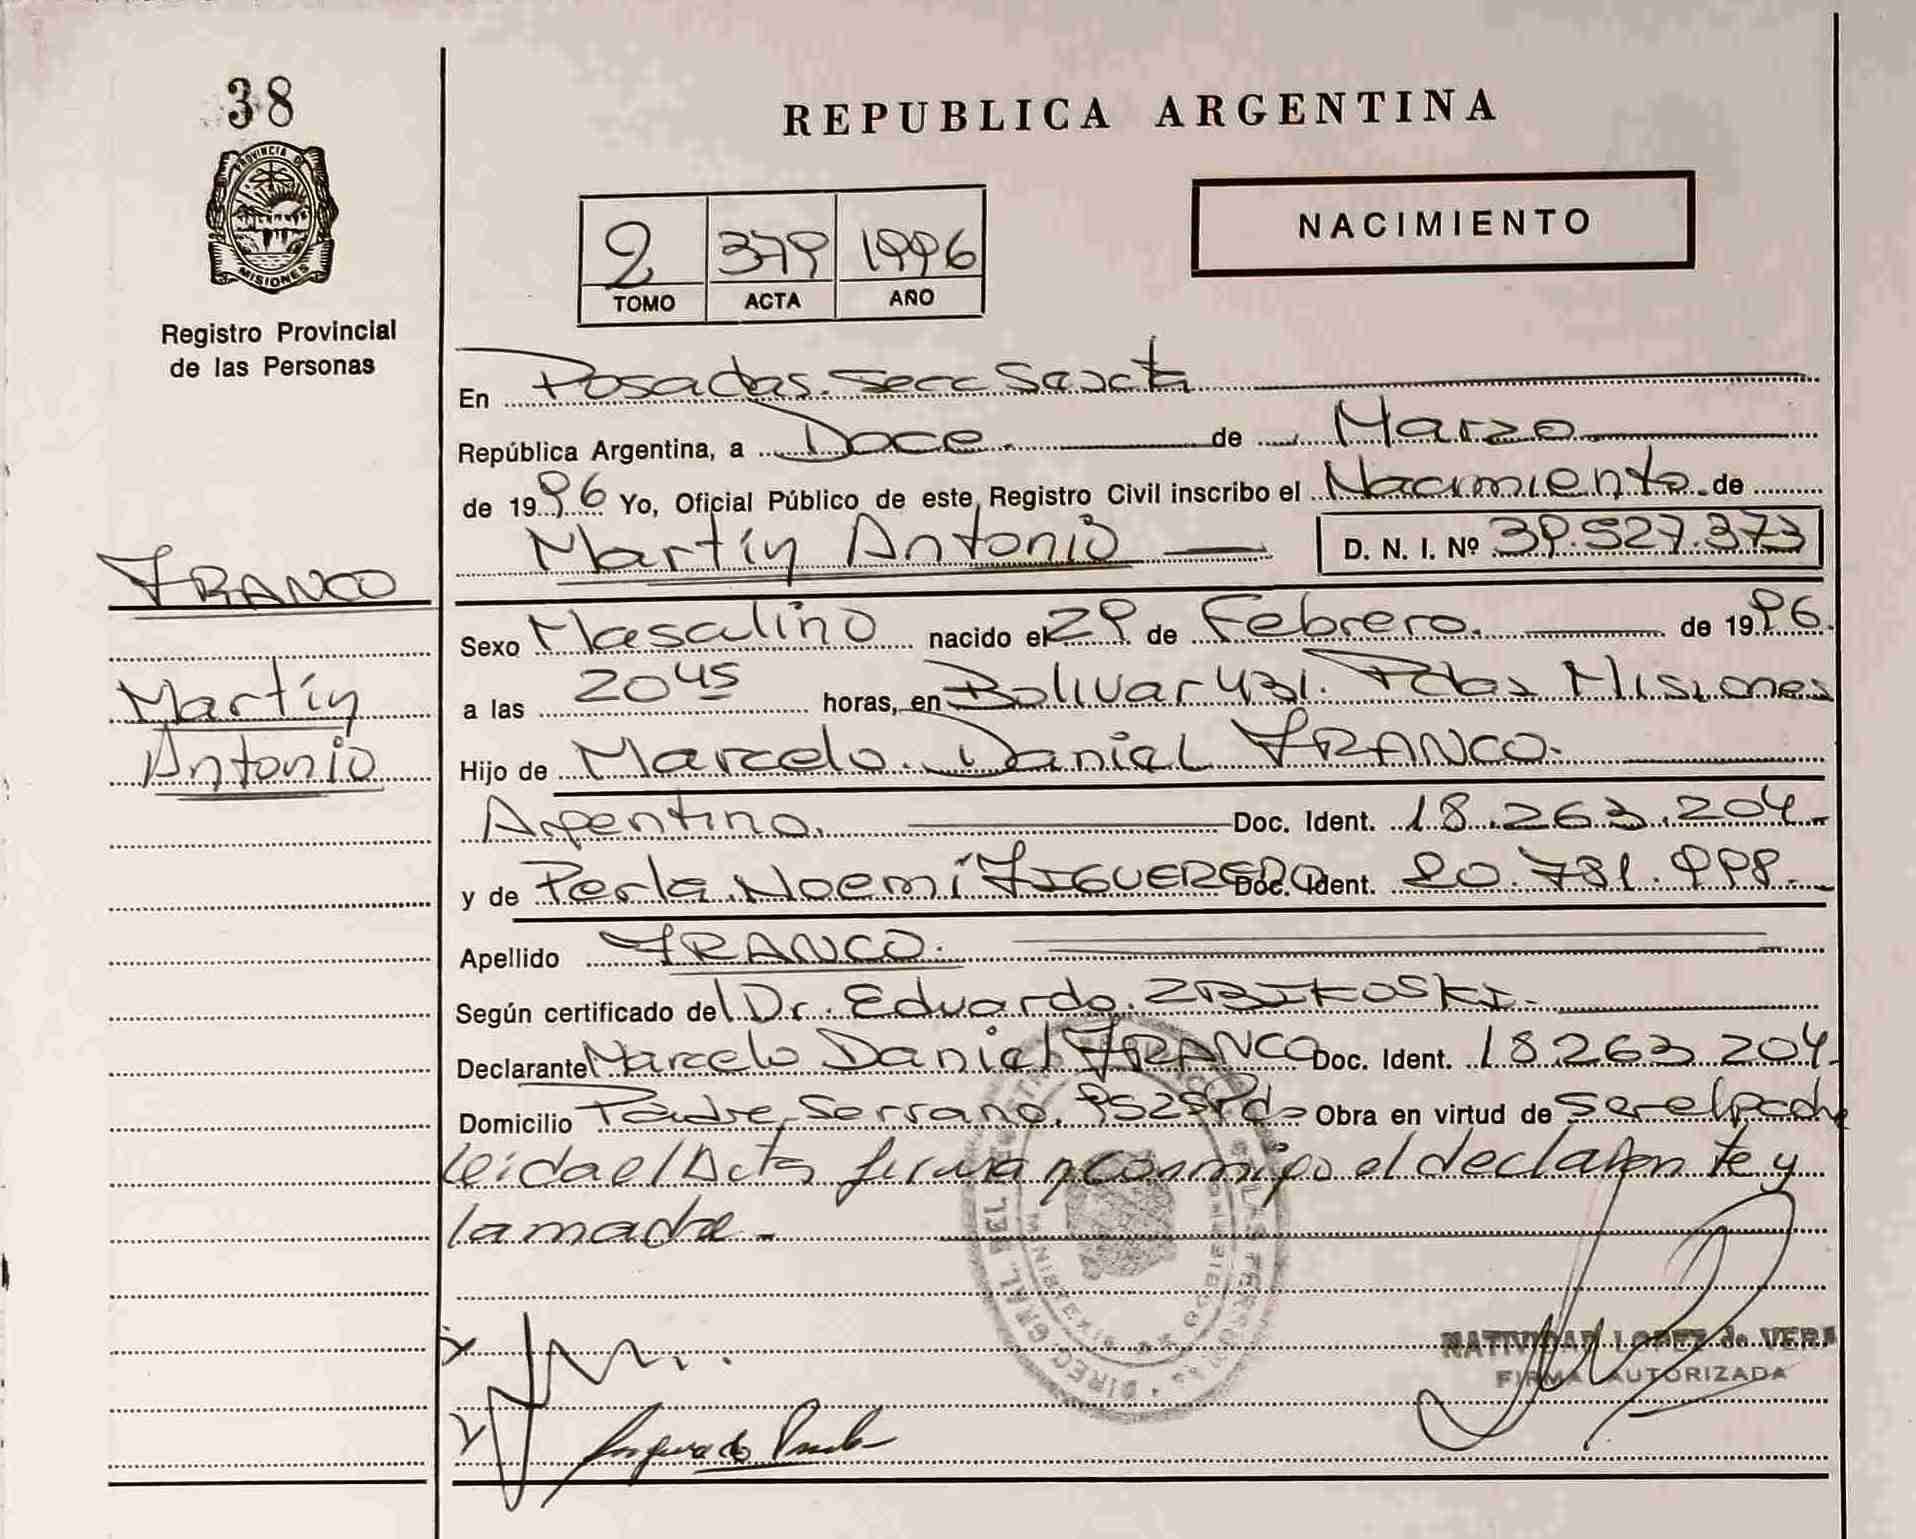 38
PROVINCIA DE
MISIONES
Registro Provincial
de las Personas
REPUBLICA ARGENTINA
NACIMIENTO
2 379 1996
TOMO ACTA AÑO
En Posadas. Secc Sexta
República Argentina, a Doce. de Marzo
de 1996 Yo, Oficial Público de este Registro Civil inscribo el Nacimiento de
Martín Antonio D. N. I. Nº 39.527.373
FRANCO
Martín
Antonio
Sexo Masculino nacido el 29 de Febrero. de 1996.
a las 20 45 horas, en Bolivar 431. Pdas Misiones
Hijo de Marcelo Daniel FRANCO.
Argentino. Doc. Ident. 18.263.204
y de Perla Noemí FIGUEREDO Doc. Ident. 20.781.998.
Apellido FRANCO.
Según certificado del Dr. Eduardo ZBIKOSKI.
Declarante Marcelo Daniel FRANCO Doc. Ident. 18.263.204.
Domicilio Padre Serrano. Obra en virtud de ser el padre
leida el Acta firman conmigo el declarante y
la madre.
NATIVIDAD LOPEZ de VERA
FIRMA AUTORIZADA